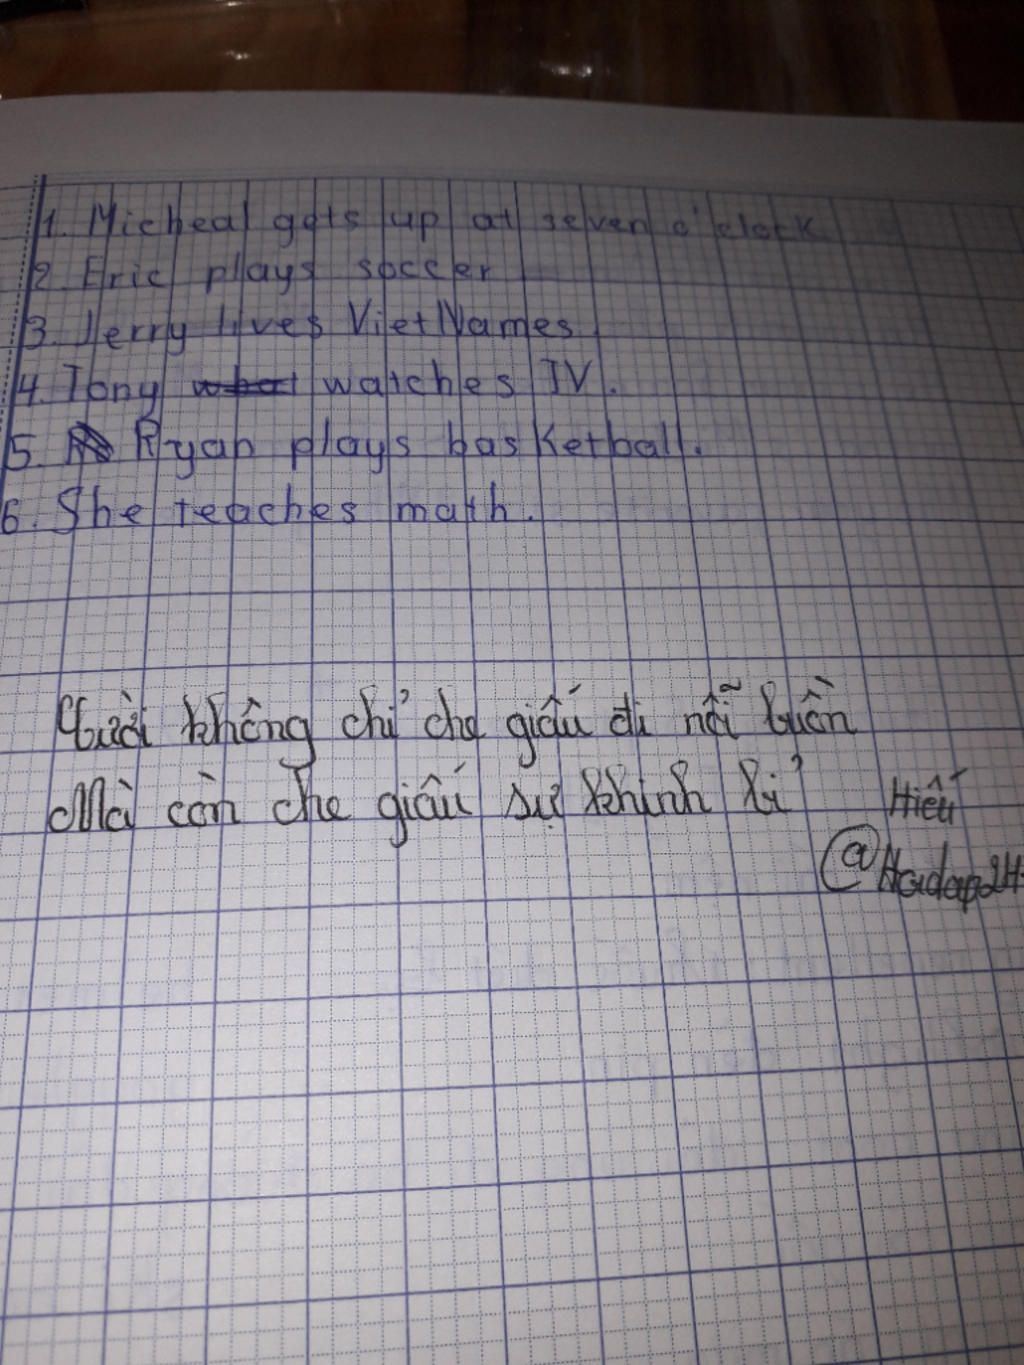 1. Micheal gets up at seven o'clock
2. Eric plays soccer
3. Jerry lives VietNames
4. Tony watches TV.
5. Ryan plays basketball.
6. She teaches math.
Cười không chỉ che giấu đi nỗi buồn
Mà còn che giấu sự khinh bỉ
Hiếu
@Hoidap24H